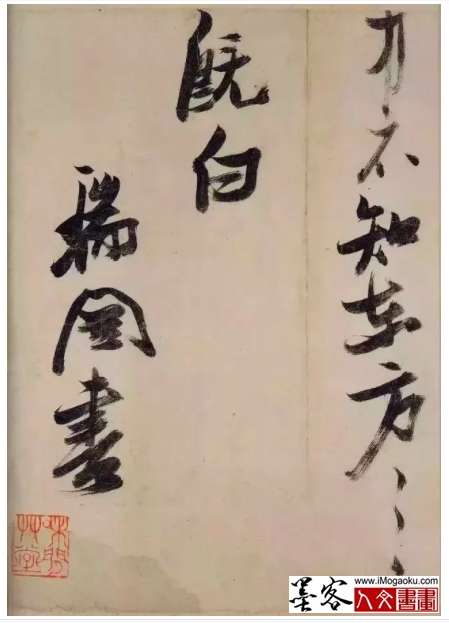 不知東方之
既白
瑞圖書
墨客
www.iMogaoku.com
人文書畫